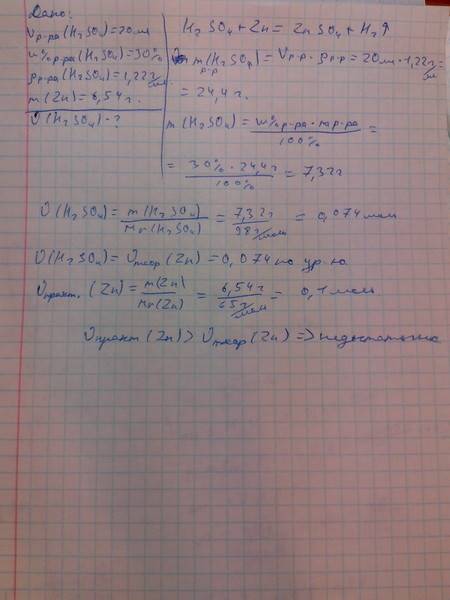 Дано:
Vр-ра(H2SO4)=20мл
w%р-ра(H2SO4)=30%
ρр-ра(H2SO4)=1,22г/мл
m(Zn)=6,54г.
ν(H2SO4)-?
H2SO4+Zn=ZnSO4+H2↑
m(H2SO4)р-р=Vр-р·ρр-р=20мл·1,22г/мл=
=24,4г.
m(H2SO4)=w%р-ра·mр-ра/100%=
=30%·24,4г/100%=7,32г
ν(H2SO4)=m(H2SO4)/Mr(H2SO4)=7,32г/98г/моль=0,074моль
ν(H2SO4)=νтеор(Zn)=0,074 по ур-ю
νпракт.(Zn)=m(Zn)/Mr(Zn)=6,54г/65г/моль=0,1моль
νпракт(Zn)>νтеор(Zn)=>недостаточно